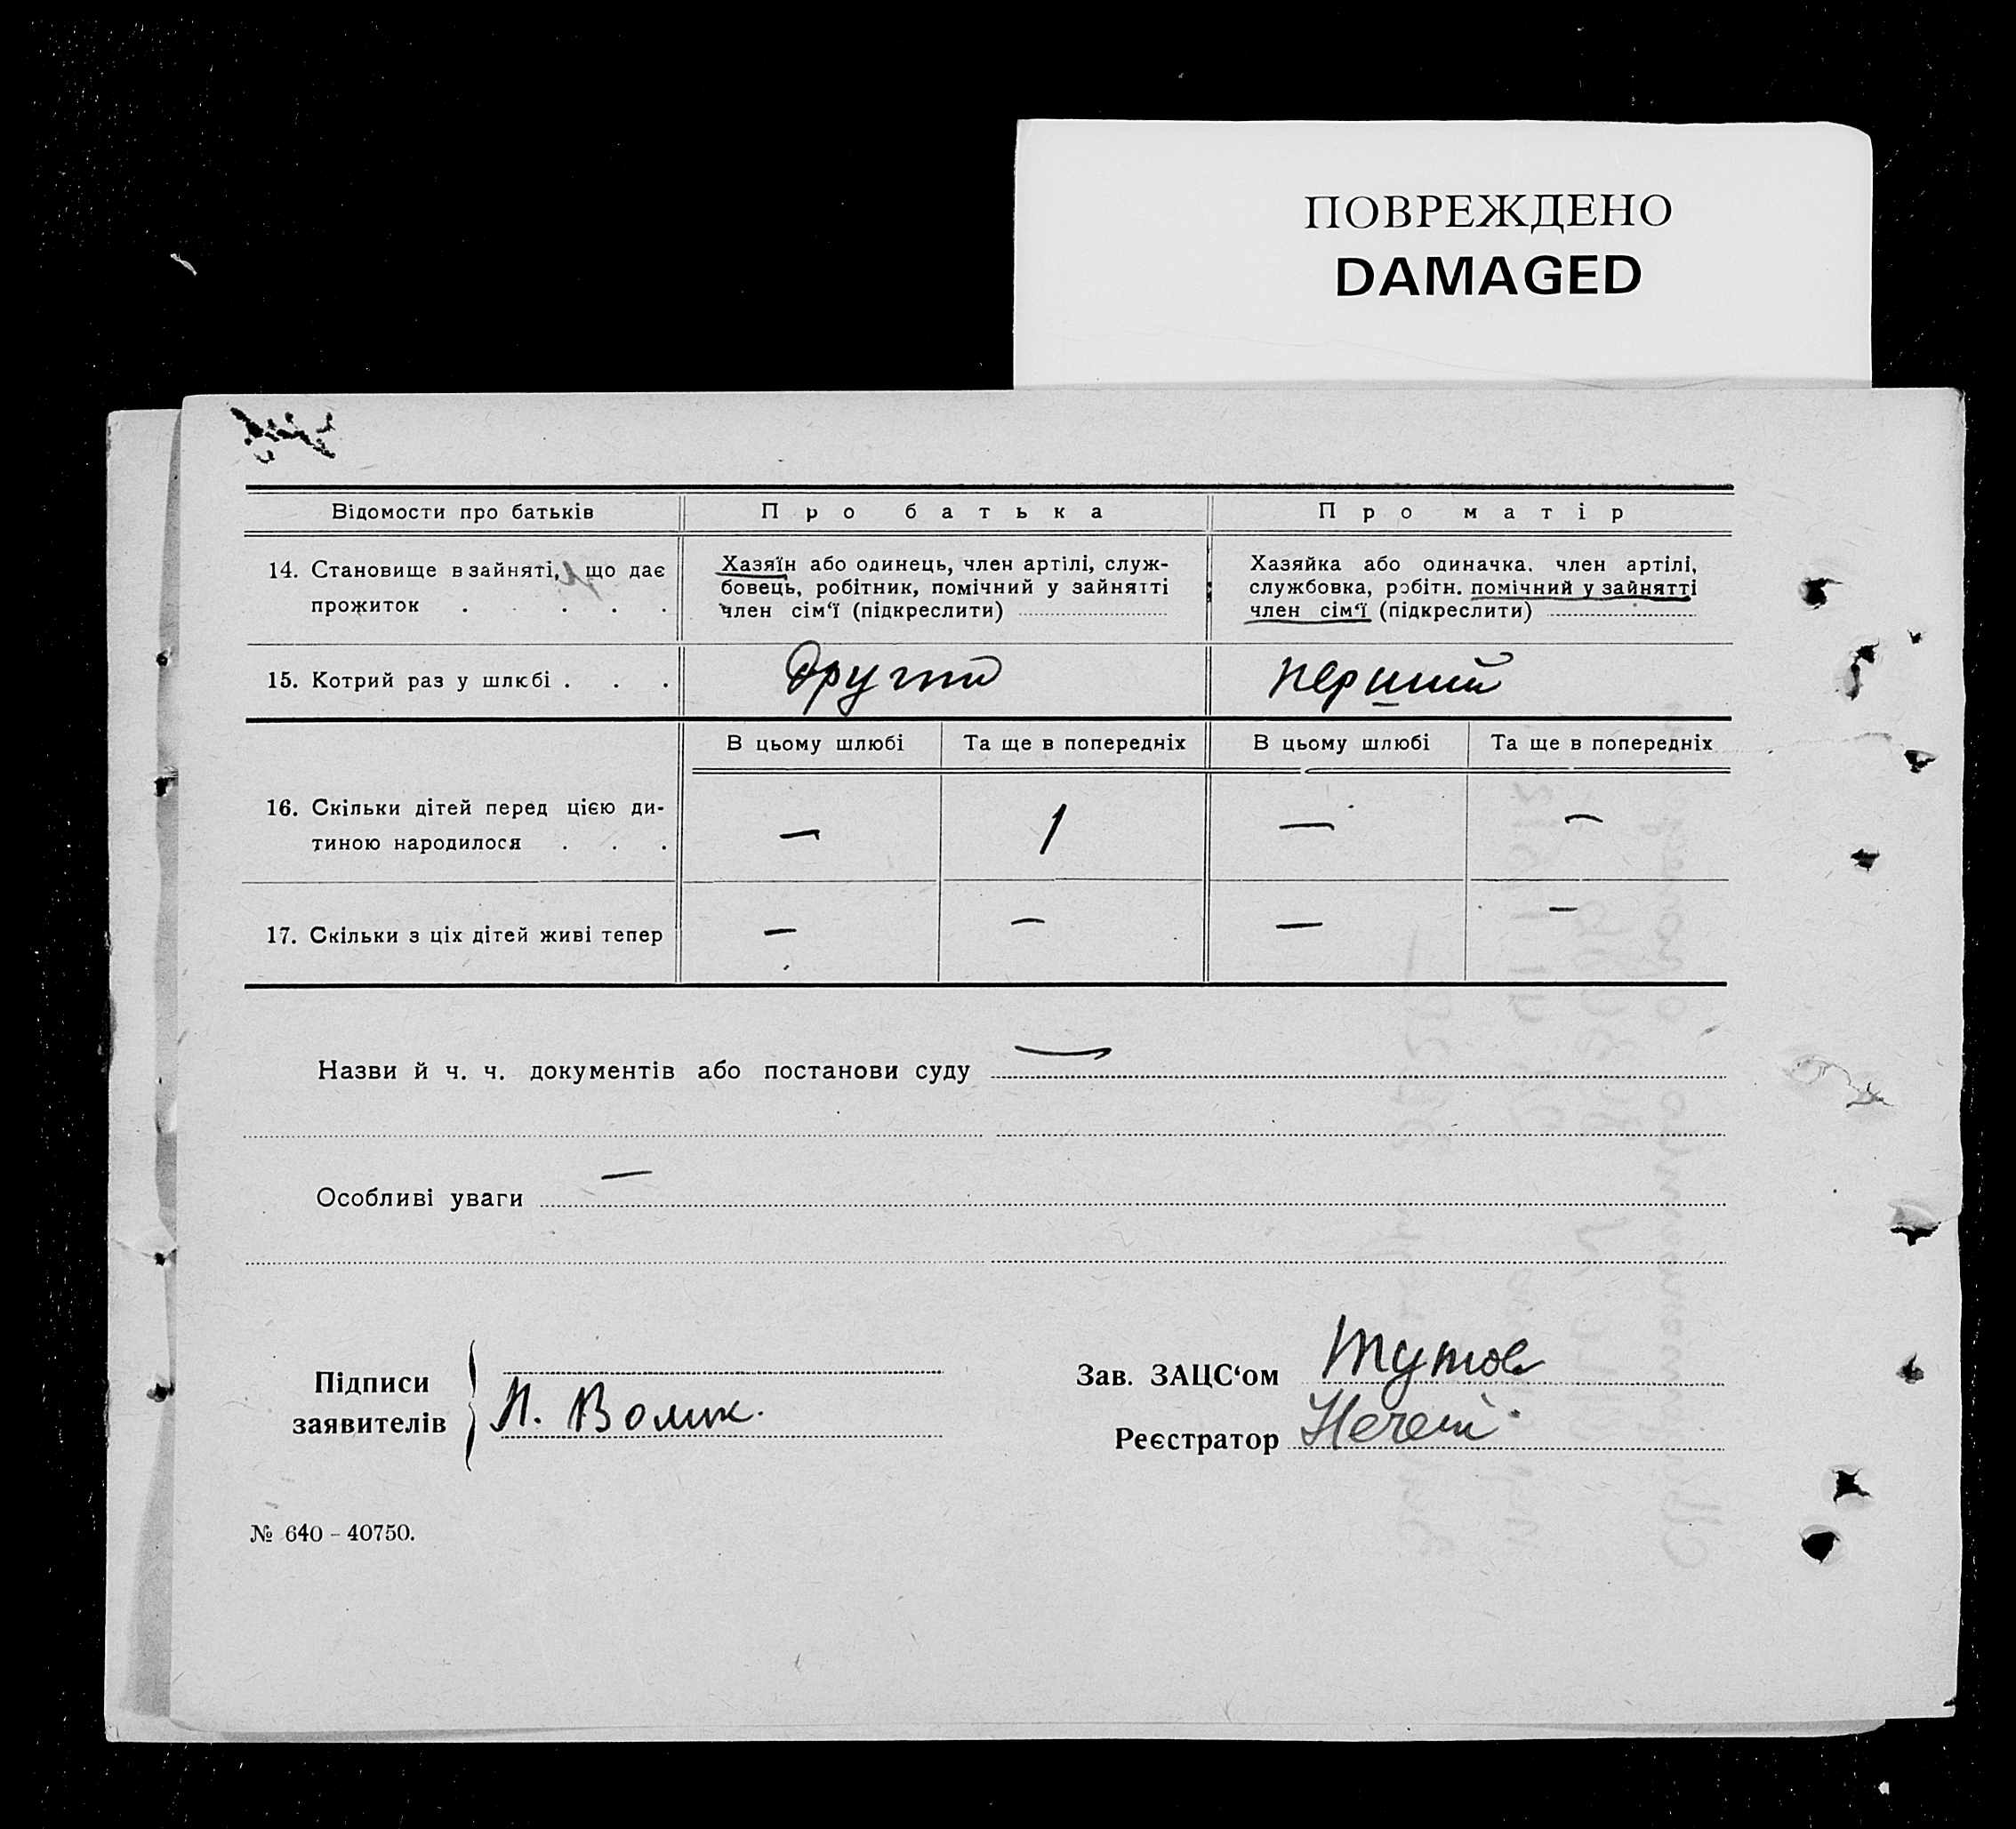 ПОВРЕЖДЕНО
DAMAGED
Відомости про батьків
Про батька
Про матір
14. Становище в зайняті, що дає
прожиток . . . . .
Хазяїн або одинець, член артілі, служ-
бовець, робітник, помічний у зайнятті
член сім'ї (підкреслити)
Хазяйка або одиначка. член артілі,
службовка, робітн. помічний у зайнятті
член сім'ї (підкреслити)
15. Котрий раз у шлюбі . . .
другий
перший
В цьому шлюбі
Та ще в попередніх
В цьому шлюбі
Та ще в попередніх
16. Скільки дітей перед цією ди-
тиною народилося . . .
— 1 — —
17. Скільки з ціх дітей живі тепер
— — — —
Назви й ч. ч. документів або постанови суду —
Особливі уваги —
Підписи
заявителів
П. Волик.
Зав. ЗАЦС'ом
Реєстратор
№ 640 - 40750.